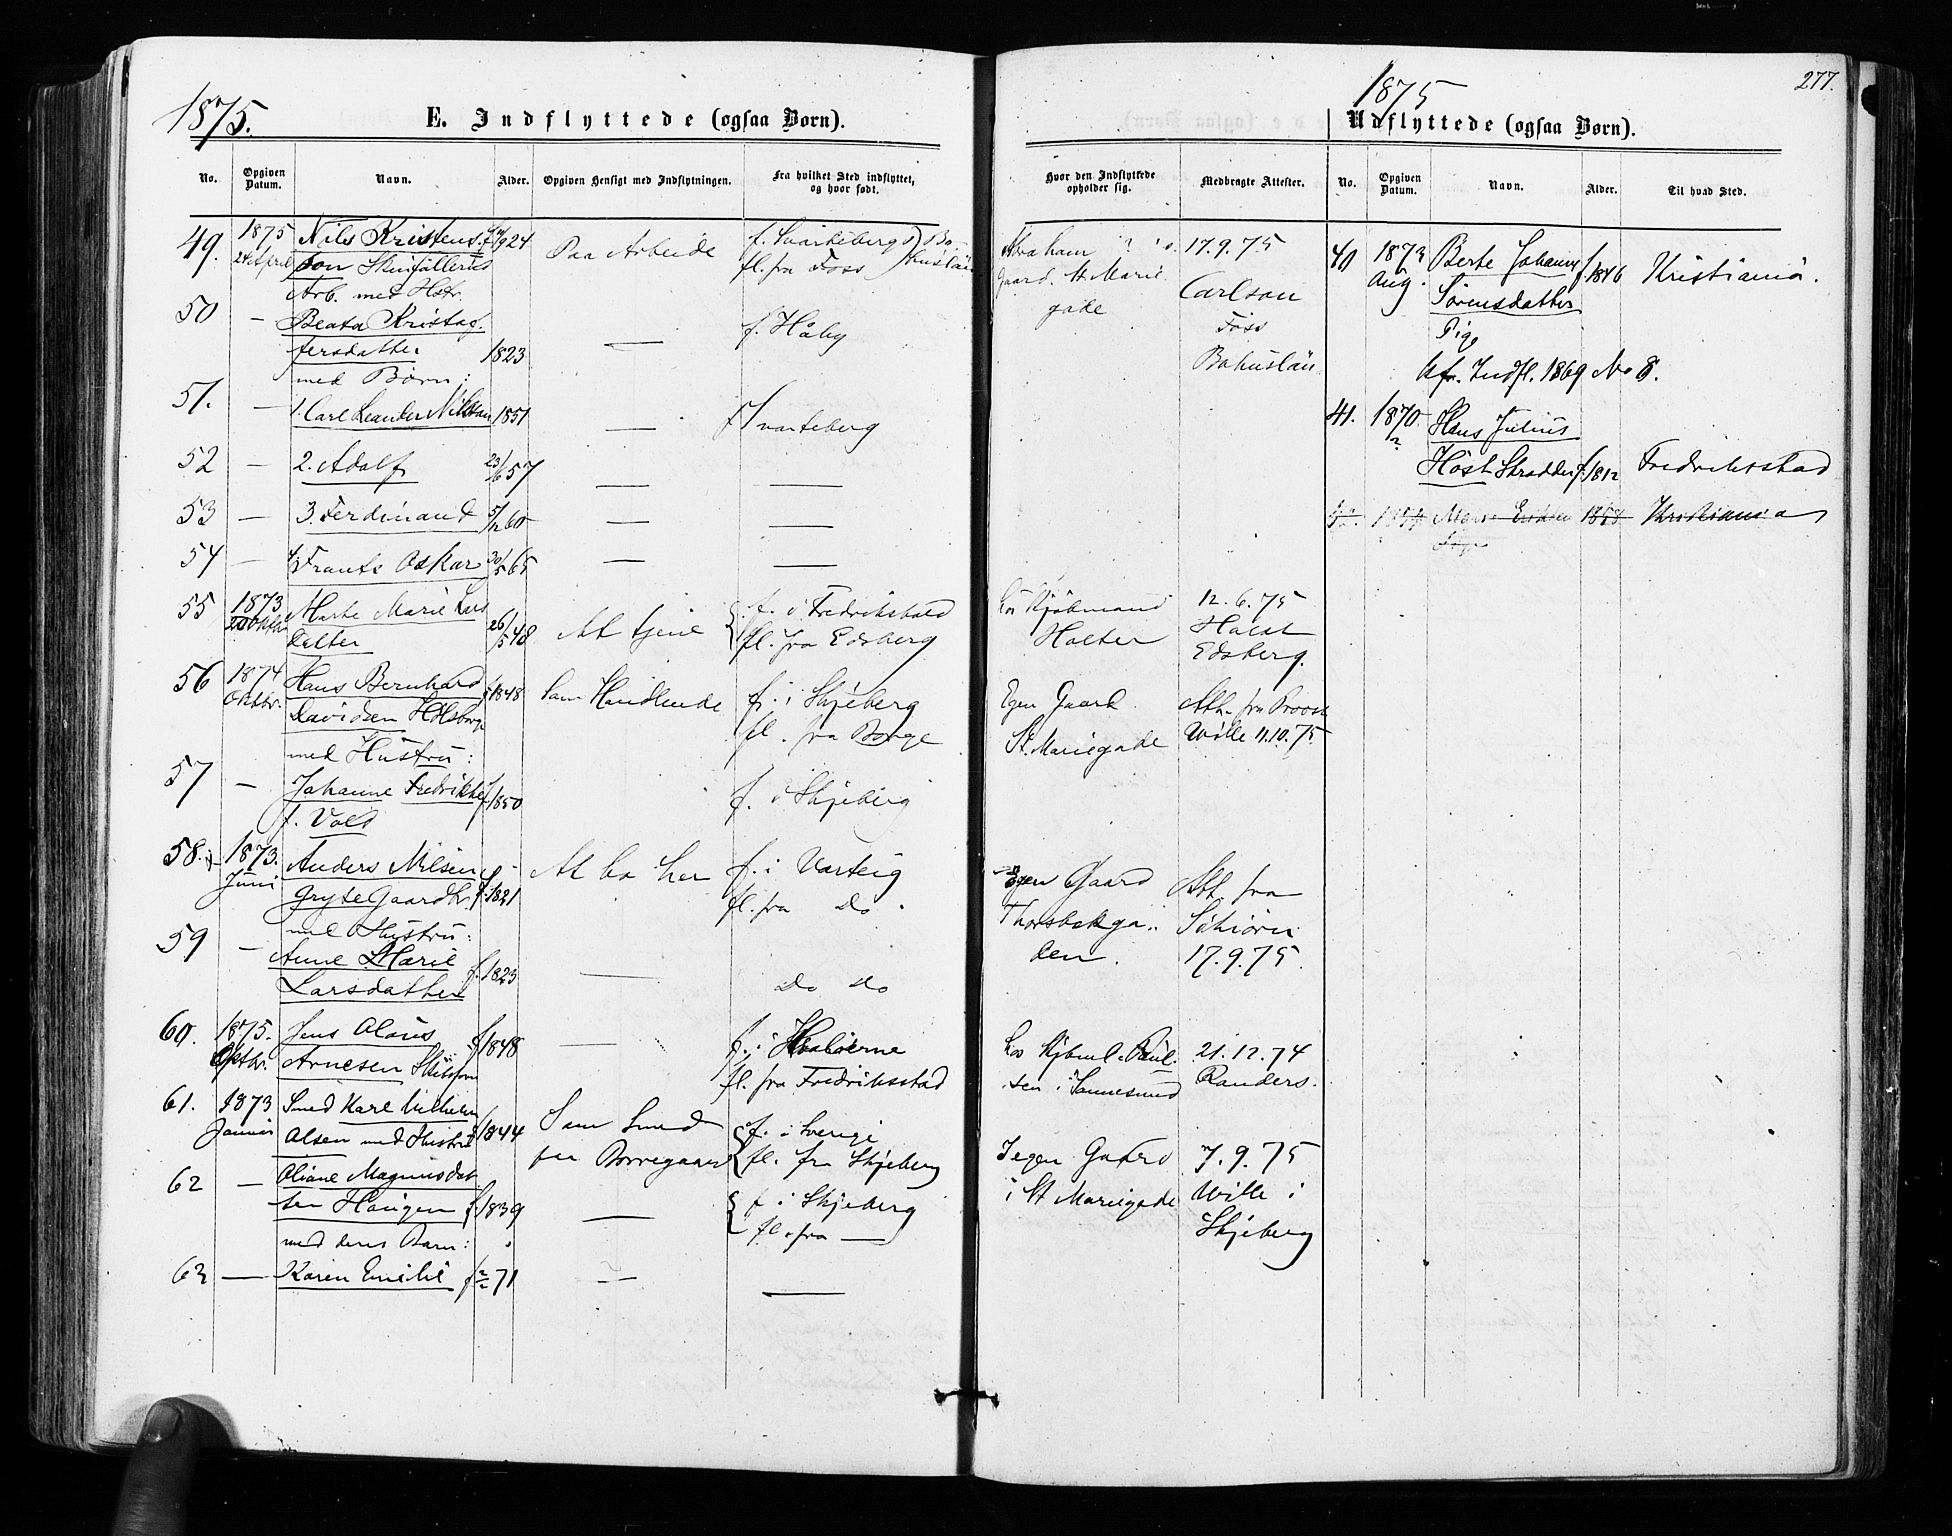 277.
1875.
E. Indflyttede (ogsaa Børn).
No.
Opgiven Datum.
Navn.
Alder.
Opgiven Hensigt med Indflytningen.
Fra hvilket Sted indflyttet, og hvor født.
Hvor den Indflyttede opholder sig.
Medbragte Attester.
49. 1875 Nils Kristens- 24 Paa Arbeide f. Svarteberg Bo- Abraham 17.9.75
24 April son fl. fra Foss huslän gaard. St Marie Carlson
Arb. med Hstr. gade Foss
50 — Beata Kristof- — f. Håby Bohuslän
fersdatter 1823
med Børn:
51. — 1. Carl Leander Nilsson 1851 — f Svarteberg
52 — 2. Adolf 23/6 57 — —
53 — 3. Ferdinand 5/12 60 — —
54 — 4. Frants Oskar 30/5 65 — —
55 1873 Marte Marie Lars At tjene f. i Fredrikstad hos Kjøbmand 12.6.75
datter 26/5 48 fl. fra Edsberg Holter Holst
Edsberg.
56 1874 Hans Bernhard f 1848 Som Handlende f. i Skjeberg Egen Gaard Att. fra Provst
Oktbr. Davidsen fl. fra Borge St. Mariegade Wille 11.10.75
med Hustru:
57 — Johanne Fredrikke f 1850 f. i Skjeberg
f. Vold
58. 1873. Anders Nilsen At bo her f. i Varteig Egen Gaard Att fra
Juni Gryte Gaardbr. f. 1821 fl. fra Do. Thorsbekga- Schiørn
med Hustru: den. 17.9.75.
59 — Anne Marie f. 1823 — Do Do
Larsdatter
60. 1875. Jens Olaus f 1848 — f. i Hvaløerne hos Kjbmd. Paul- 21.12.74
Oktbr. Arnesen fl. fra Fredriksstad sen i Sannesund Randers.
61. 1873 Smed Karl Wilhelm f 1844 Som Smed f. i Sverige I egen Gaard 7.9.75
Januar Olsen med Hustru paa Borregaard fl. fra Skjeberg i St Mariegade Wille i
62 — Oliane Magnusdat- — f i Skjeberg Skjeberg
ter Haugen f. 1839 fl. fra —
med deres Barn:
63 — Karen Emilie f 2/2 71 — —
1875
Udflyttede (ogsaa Børn).
No.
Opgiven Datum.
Navn.
Alder.
Til hvad Sted.
40 1873 Berte Johanne f 1846 Kristiania.
Aug. Sørensdatter
Pige
Indfl. 1869 No 8.
41. 1870 Hans Julius
Høst Skrædder f. 1812 Fredriksstad
Kristiania